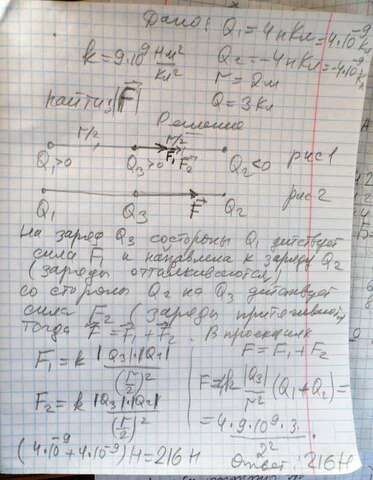 Дано: Q₁ = 4 нКл = 4·10⁻⁹ Кл
k = 9·10⁹ Нм²/Кл²
Q₂ = -4 нКл = -4·10⁻⁹ Кл
r = 2м
Q = 3 Кл
Найти: |F⃗|
Решение
r/2 r/2
Q₁>0 Q₃>0 F⃗₁ F⃗₂ Q₂<0 рис 1
Q₁ Q₃ F⃗ Q₂ рис 2
На заряд Q₃ со стороны Q₁ действует
сила F₁ и направлена к заряду Q₂
(заряды отталкиваются)
со стороны Q₂ на Q₃ действует
сила F₂ (заряды притягиваются)
Тогда F⃗ = F⃗₁ + F⃗₂. В проекциях
F = F₁ + F₂
F₁ = k |Q₃|·|Q₁| / (r/2)²
F₂ = k |Q₃|·|Q₂| / (r/2)²
F = 4k |Q₃| / r² (Q₁ + Q₂) =
= 4·9·10⁹·3 / 2² ·
(4·10⁻⁹ + 4·10⁻⁹) Н = 216 Н
Ответ: 216 Н